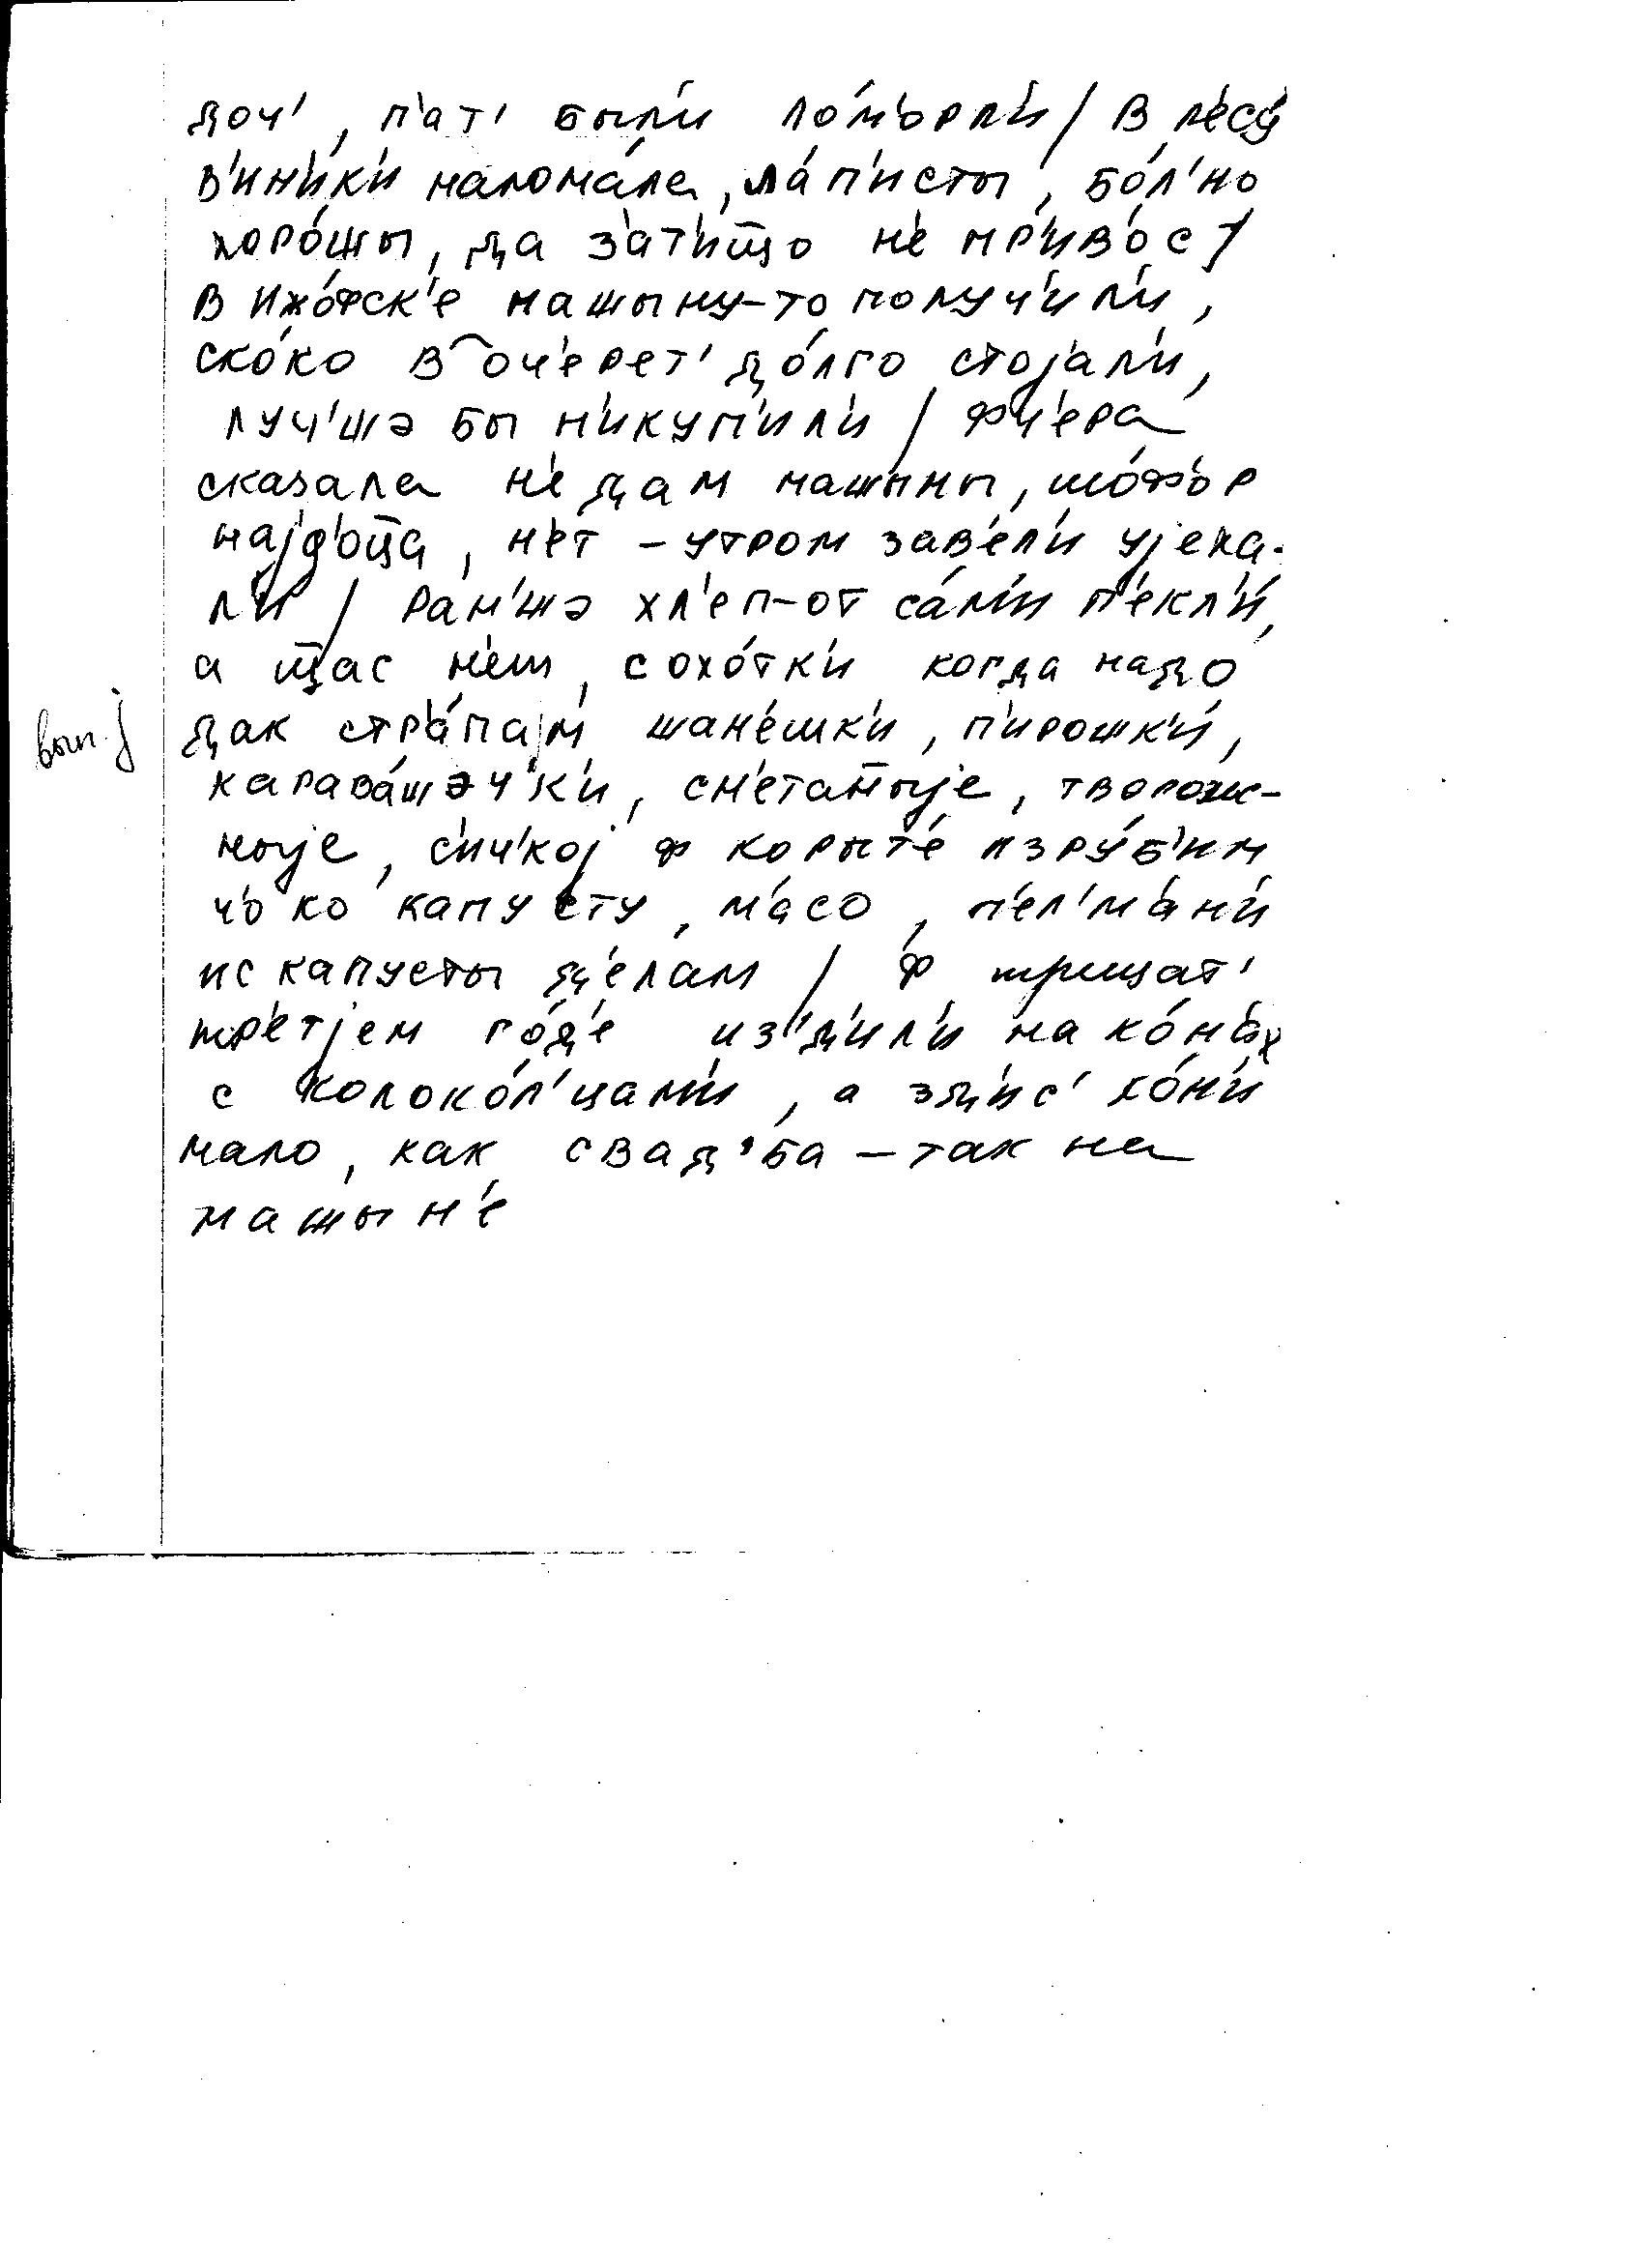 доч', п'ат' были́ по́м'орл'и / в л'есу́
в'и́н'ик'и налома́ла, ла́п'исты, бо́л'но
хоро́шы, да з'ат'и т̅що н'е пр'ив'о́с /
в ижо́фск'е машыну-то получ'ил'и,
ско́ко в оч'ер'ет' до́лго стојал'и,
луч'шэ бы н'икуп'ил'и / фч'ера
сказала н'е дам машыны, шо́ф'ор
најд'о̄ца, н'ет – утром зав'ел'и ујеха-
л'и / ран'шэ хл'еп-от са́м'и п'екл'и́,
а щ̅ас н'еш, с охо́тк'и когда надо
дак стр'а́пајм шан'ешк'и, п'ирошк'и́,
карава́шэч'к'и, см'ета̄ныје, творож-
ныје, с'ич'кој ф корыт'е изру́б'им
ч'о ко капусту, м'асо, п'ел'м'а́н'и
ис капусты д'елам / ф трицат'
тр'етјем го́д'е из'д'ил'и на ко́н'ах
с колоко́л'цам'и, а зд'ис' ко́н'и
мало, как свад'ба – так на
машын'е
вып. j